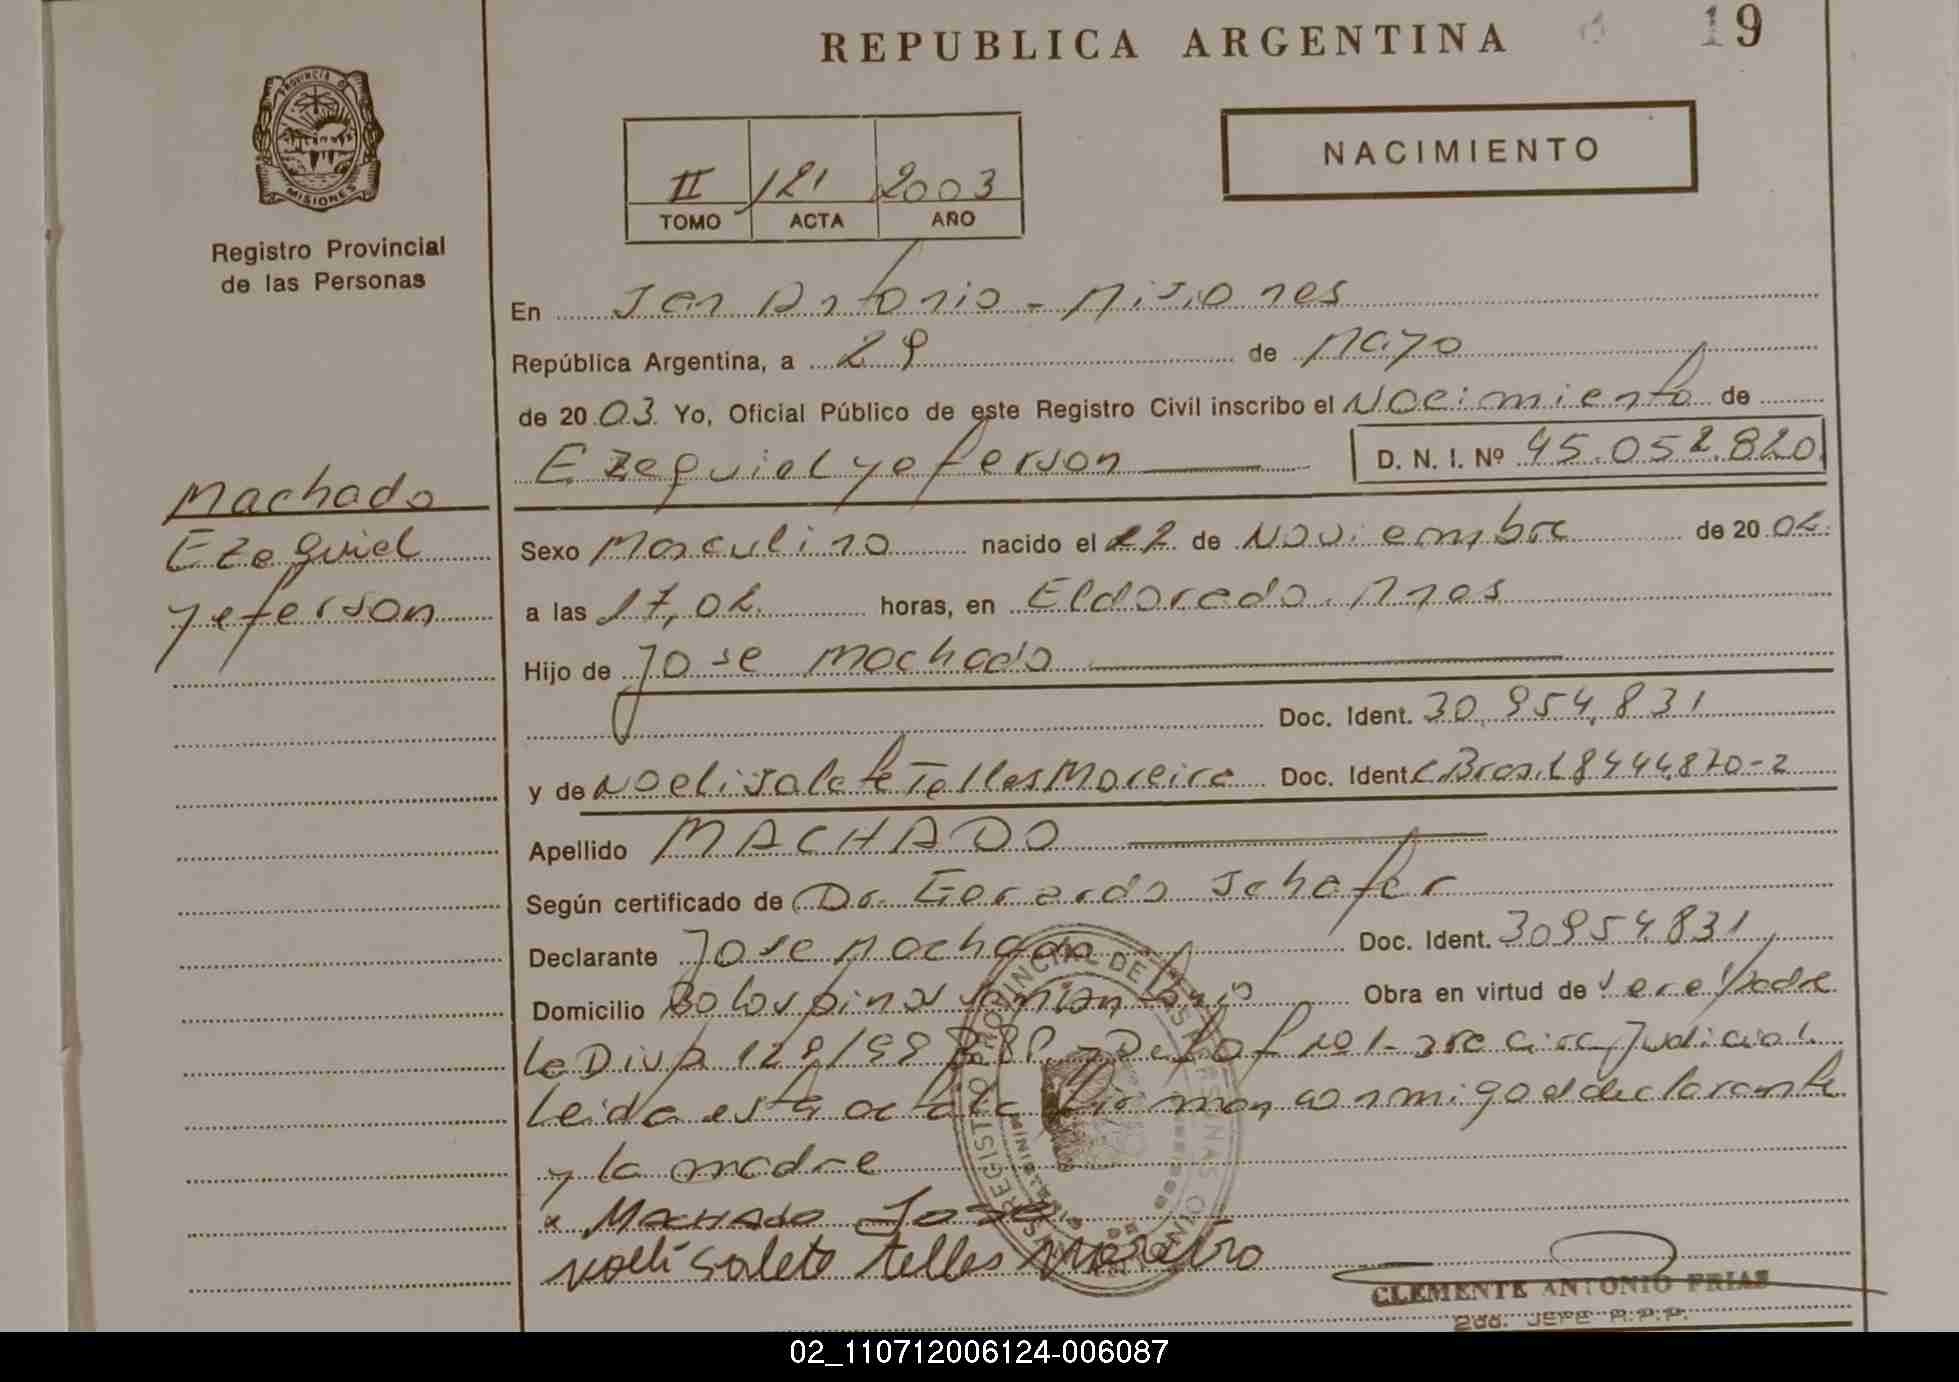 REPUBLICA ARGENTINA
19
PROVINCIA DE
MISIONES
Registro Provincial
de las Personas
NACIMIENTO
II 121 2003
TOMO ACTA AÑO
En San Antonio - Misiones
República Argentina, a 29 de Mayo
de 2003 Yo, Oficial Público de este Registro Civil inscribo el Nacimiento de
Ezequiel yeferson D. N. I. Nº 45.052.820
Machado
Ezequiel
yeferson
Sexo Masculino nacido el 12 de Noviembre de 2002
a las 17,02 horas, en Eldorado. Mnes
Hijo de Jose Machado
Doc. Ident. 30.954.831
y de Noeli Salete Telles Moreira Doc. Ident. C Brasil 8444.870-2
Apellido MACHADO
Según certificado de Dr. Gerardo Schafer
Declarante Jose Machado Doc. Ident. 30954831
Domicilio San Antonio Obra en virtud de ser el padre
Ley 1 - 3re Circ. Judicial.
Leida esta acta la firman conmigo el declarante
y la madre
x MACHADO JOSE
noeli salete telles moreira
CLEMENTE ANTONIO FRIAS
2do. JEFE R.P.P.
02_110712006124-006087